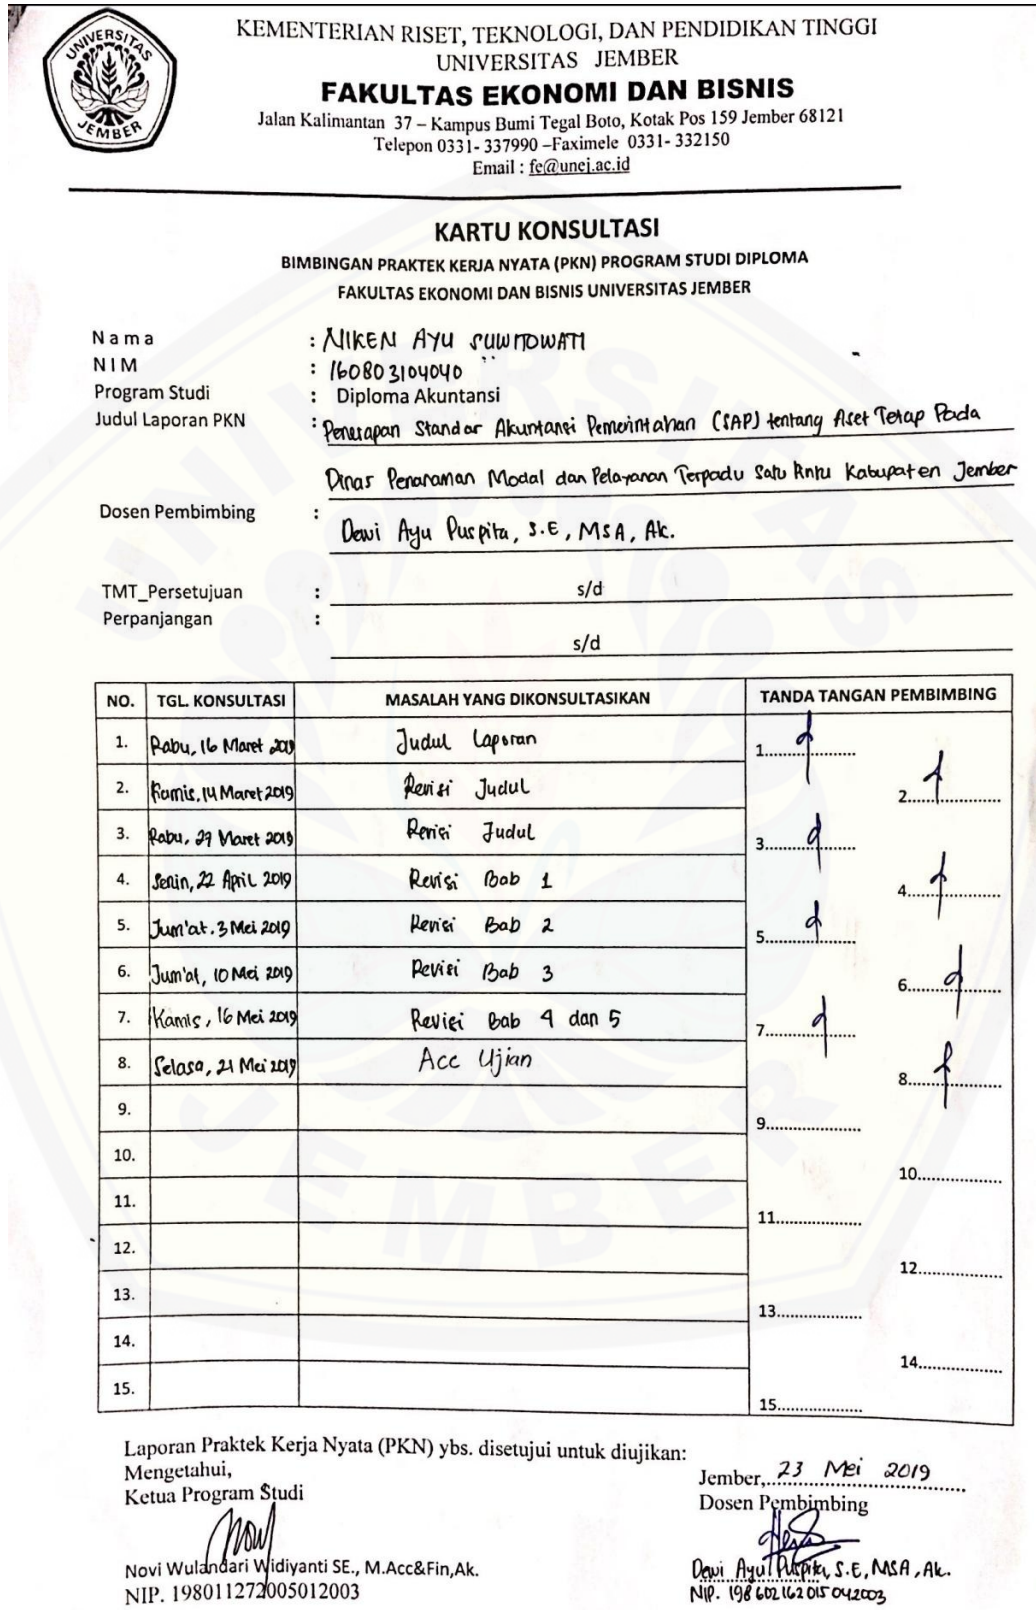 UNIVERSITAS
JEMBER
KEMENTERIAN RISET, TEKNOLOGI, DAN PENDIDIKAN TINGGI
UNIVERSITAS JEMBER
FAKULTAS EKONOMI DAN BISNIS
Jalan Kalimantan 37 – Kampus Bumi Tegal Boto, Kotak Pos 159 Jember 68121
Telepon 0331- 337990 –Faximele 0331- 332150
Email : fe@unej.ac.id
KARTU KONSULTASI
BIMBINGAN PRAKTEK KERJA NYATA (PKN) PROGRAM STUDI DIPLOMA
FAKULTAS EKONOMI DAN BISNIS UNIVERSITAS JEMBER
Nama : NIKEN AYU SUWITOWATI
NIM : 160803104040
Program Studi : Diploma Akuntansi
Judul Laporan PKN : Penerapan Standar Akuntansi Pemerintahan (SAP) tentang Aset Tetap Pada
Dinas Penanaman Modal dan Pelayanan Terpadu Satu Pintu Kabupaten Jember
Dosen Pembimbing : Dewi Ayu Puspita, S.E, MSA, Ak.
TMT_Persetujuan : s/d
Perpanjangan : s/d
NO. TGL. KONSULTASI MASALAH YANG DIKONSULTASIKAN TANDA TANGAN PEMBIMBING
1. Rabu, 16 Maret 2019 Judul Laporan 1..................
2. Kamis, 14 Maret 2019 Revisi Judul 2..................
3. Rabu, 27 Maret 2019 Revisi Judul 3..................
4. Senin, 22 April 2019 Revisi Bab 1 4..................
5. Jum'at, 3 Mei 2019 Revisi Bab 2 5..................
6. Jum'at, 10 Mei 2019 Revisi Bab 3 6..................
7. Kamis, 16 Mei 2019 Revisi Bab 4 dan 5 7..................
8. Selasa, 21 Mei 2019 Acc Ujian 8..................
9. 9..................
10. 10..................
11. 11..................
12. 12..................
13. 13..................
14. 14..................
15. 15..................
Laporan Praktek Kerja Nyata (PKN) ybs. disetujui untuk diujikan:
Mengetahui, Jember, 23 Mei 2019
Ketua Program Studi Dosen Pembimbing
Novi Wulandari Widiyanti SE., M.Acc&Fin,Ak. Dewi Ayu Puspita, S.E, MSA, Ak.
NIP. 198011272005012003 NIP. 198602162015042003